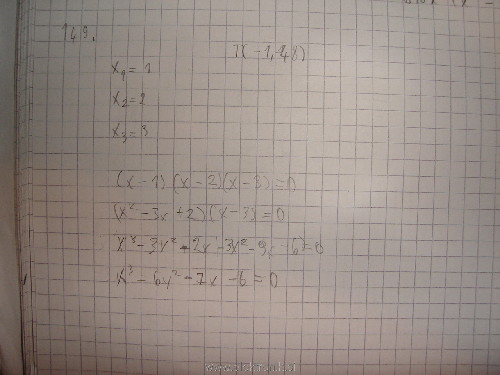 149.
T(-1,48)
x₁ = 1
x₂ = 2
x₃ = 3
(x - 1)(x - 2)(x - 3) = 0
(x² - 3x + 2)(x - 3) = 0
x³ - 3x² + 2x - 3x² - 9x - 6 = 0
x³ - 6x² - 7x - 6 = 0